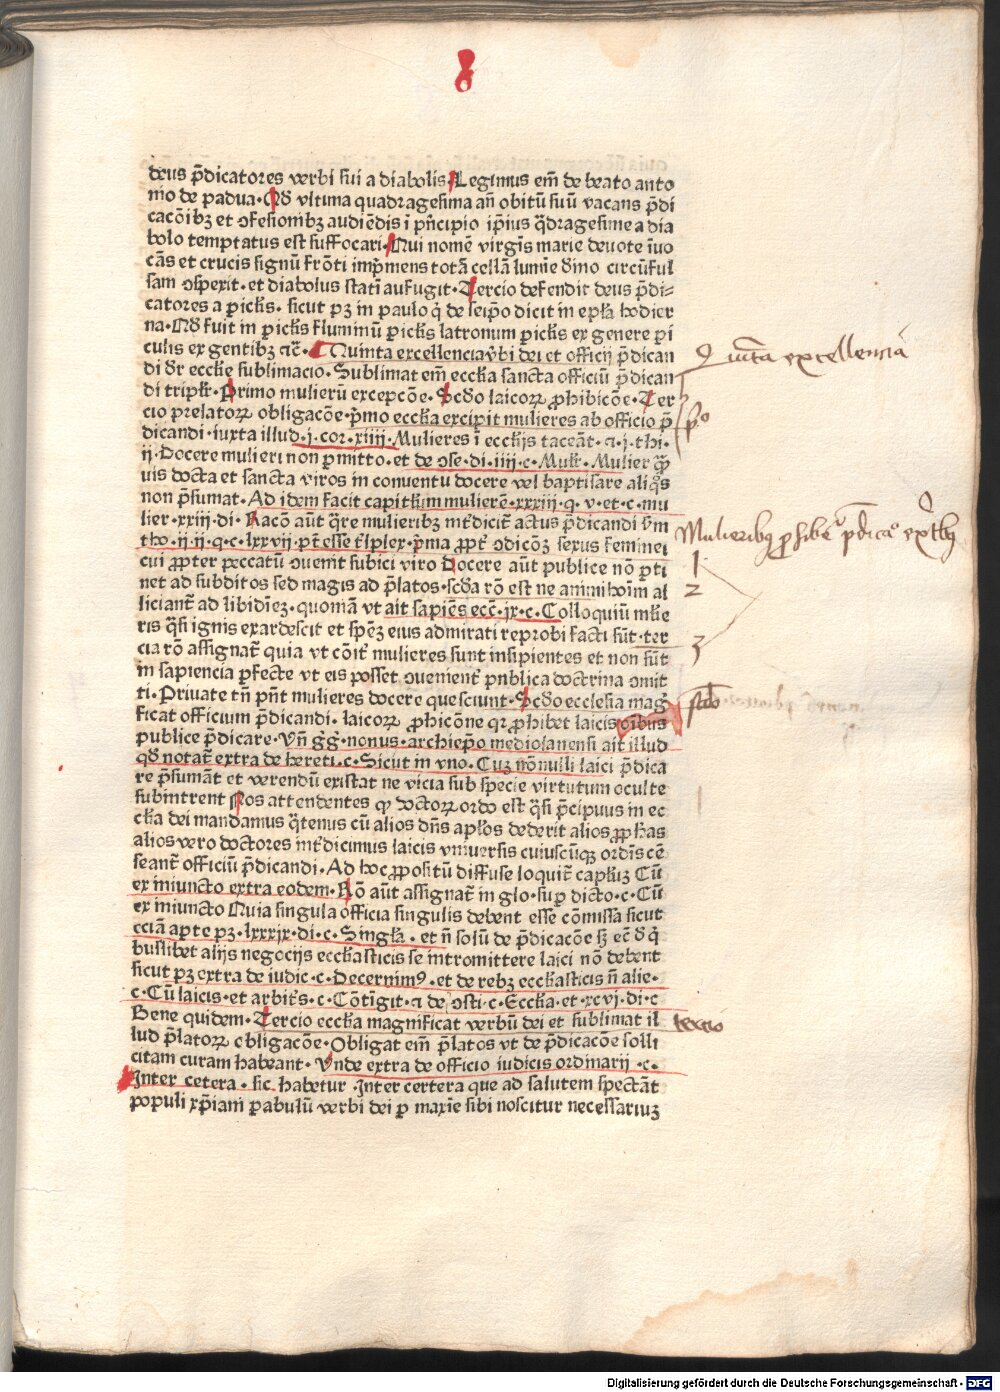 8
deus p̄dicatores verbi sui a diabolis. Legimus em̄ de beato anto
nio de padua. Qđ vltima quadragesima añ obitū suū vacans p̄di
cacōibꝫ et ꝯfessionibꝫ audiēdis ī p̄ncipio ip̄ius q̄dragesime a dia
bolo temptatus est suffocari. Qui nomē virgīs marie deuote īuo
cās et crucis signū frōti imp̄mens totā cellā lumīe diuino circūful
sam ꝯspexit. et diabolus statī aufugit. Tercio defendit deus p̄di⸗
catores a pickis. sicut pꝫ in paulo q̇ de seip̄o dicit in epl̄a hodier
na. Qđ fuit in pickis fluminū pickis latronum pickis ex genere pi
culis ex gentibꝫ ꝛc̄. Quinta excellencia v̓bi dei et officij p̄dican
di dr̄ eccl̄ie sublimacio. Sublimat em̄ eccl̄ia sancta officiū p̄dican
di triplr̄. Primo mulierū excepcōe. Scđo laicoꝝ ꝓhibicōe. Ter
cio prelatoꝝ obligacōe. p̄mo eccl̄ia excipit mulieres ab officio p̄
dicandi. iuxta illud. j. cor. xiiij. Mulieres ī eccl̄ijs taceāt. ꝛ. j. thi.
ij. Docere mulieri non ꝑmitto. et de ꝯse. di. iiij. c. Mulr̄. Mulier qm̄
uis docta et sancta viros in conuentu docere vel baptisare aliq̄s
non p̄sumat. Ad idem facit capitl̄um mulierē. xxxiij. q. v. et. c. mu
lier. xxiij. di. Racō aūt q̄re mulieribꝫ int̓dicit̄ actus p̄dicandi s̄m
tho. ij. ij. q. c. lxxvij. pt̄ esse t̓plex. p̄ma ꝓpt̓ ꝯdicōꝫ sexus feminei
cui ꝓpter peccatū ꝯuenit subici viro Docere aūt publice nō ꝑti
net ad subditos sed magis ad p̄latos. scđa rō est ne animi hoīm al
liciant̄ ad libidīeꝫ. quomā vt ait sapiēs ecc̄. ix. c. Colloquiū mulie
ris q̄si ignis exardescit et spēꝫ eius admirati reprobi facti sūt. ter
cia rō assignat̄ quia vt cōit̓ mulieres sunt insipientes et non sūt
in sapiencia ꝑfecte vt eis posset ꝯuenient̓ pnblica doctrina ꝯmit
ti. Priuate tn̄ pn̄t mulieres docere que sciunt. Scđo ecclesia mag̅
ficat officium p̄dicandi. laicoꝝ ꝓhicōne qꝛ ꝓhibet laicis oībus
publice p̄dicare. Vn̄ g̅g̅. nonus. archiep̄o mediolanensi ait illud
qđ notat̄ extra de hereti. c. Sicut in vno. Cuꝫ nōnulli laici p̄dica
re p̄sumāt et verendū existat ne vicia sub specie virtutum oculte
subintrent Nos attendentes ꝙ doctoꝝ ordo est q̄si p̄cipuus in ec
cl̄ia dei mandamus q̄tenus cū alios dn̄s apl̄os dederit alios ꝓphas
alios vero doctores int̓dicimus laicis vniuersis cuiuscūqꝫ ordīs cē
seant̄ officiū p̄dicandi. Ad hoc ꝓpositū diffuse loquit̄ capl̄uꝫ Cū
ex iniuncto extra eodem. Rō aūt assignat̄ in glo. sup dicto. c. Cū
ex iniuncto Quia singula officia singulis debent esse cōmissa sicut
eciā aꝑte pꝫ. lxxxix. di. c. Singl̄a. et n̄ solū de p̄dicacōe sꝫ ec̄ đ q̇
buslibet alijs negocijs eccl̄iasticis se intromittere laici nō debent
sicut pꝫ extra de iudic. c. Decernim⁹. et de rebꝫ eccl̄iasticis n̄ alie.
c. Cū laicis. et arbit̓s. c. Cōtīgit. ꝛ de ꝯsti. c. Eccl̄ia. et. xcvj. di. c
Bene quidem. Tercio eccl̄ia magnificat verbū dei et sublimat il
lud p̄latoꝝ obligacōe. Obligat em̄ p̄latos vt de p̄dicacōe solli
citam curam habeant. Vnde extra de officio iudicis ordinarij. c.
Inter cetera. sic habetur Inter certera que ad salutem spectāt
populi xp̄iani pabulū verbi dei ꝑ maxīe sibi noscitur necessariuꝫ
Quīta excellencia
p̄º
Mulieribꝫ
1
2
3
scđo
tercio
Digitalisierung gefördert durch die Deutsche Forschungsgemeinschaft - DFG